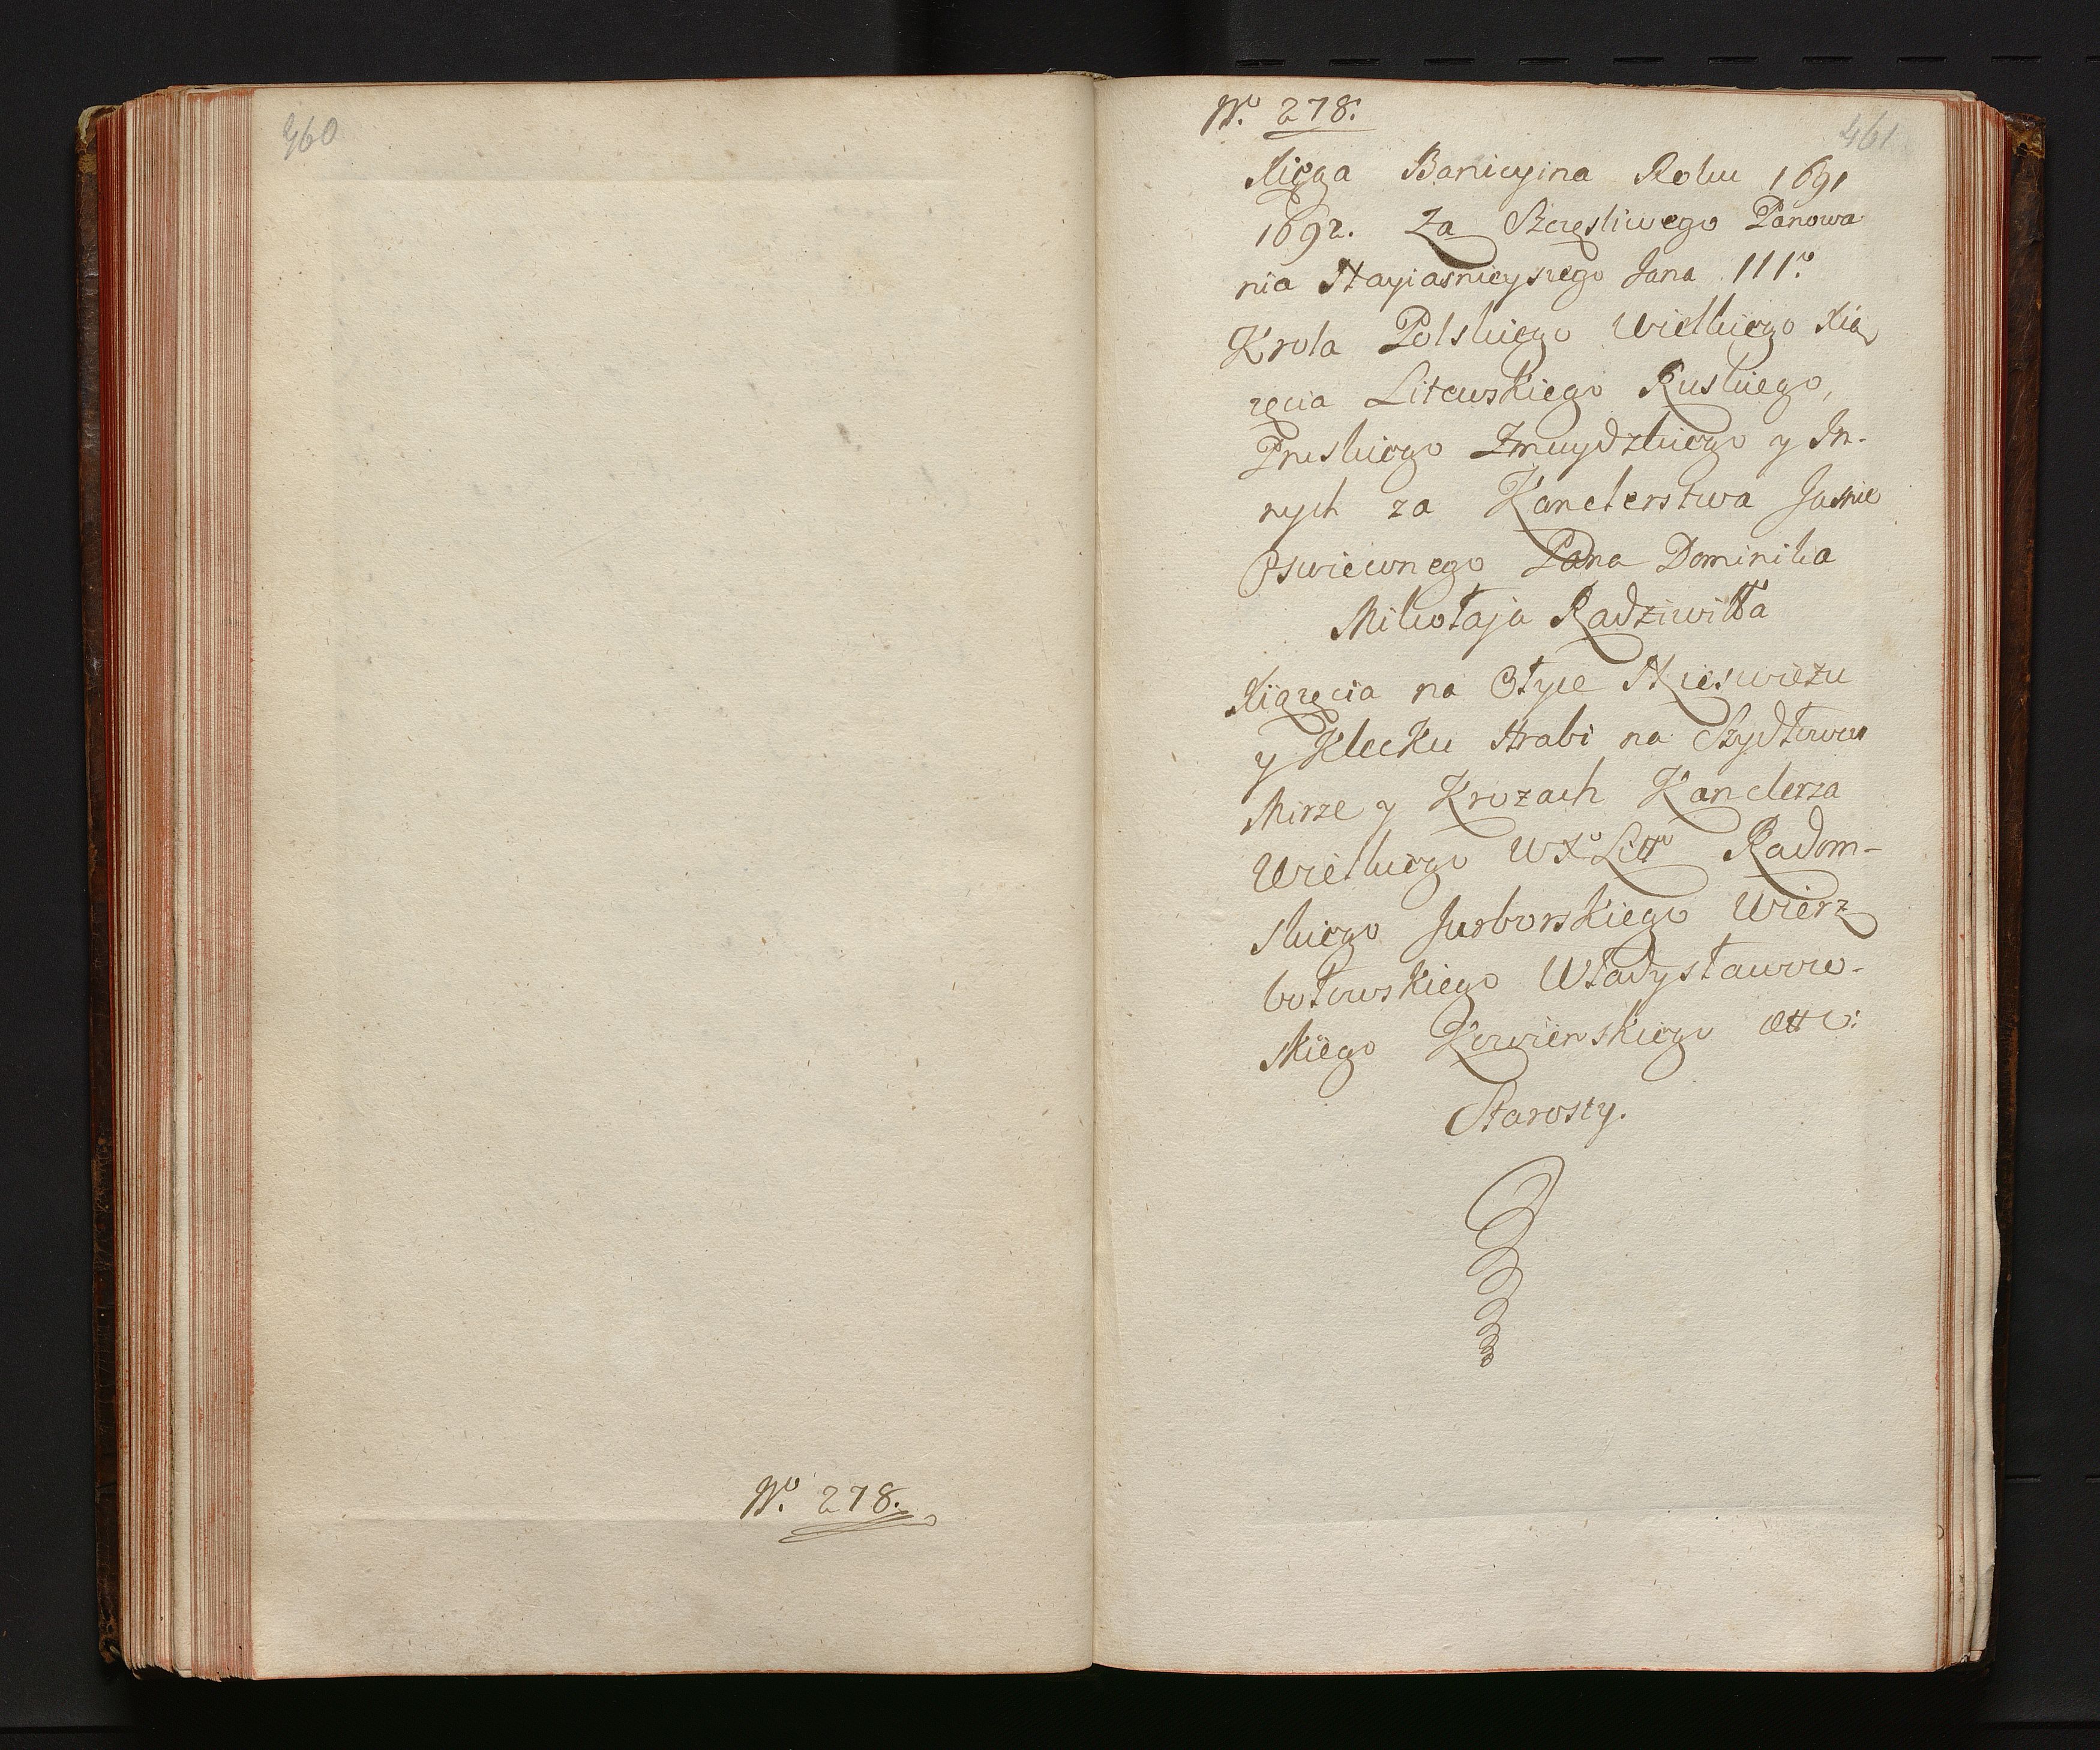 460
No. 278.
No. 278.
461
Xięga Banicyina Roku 1691
1692. Za Szczęsliwego Panowa
nia Nayiasnieyszego Jana III.o
Krola Polskiego Wielkiego Xią
zęcia Litewskiego Ruskiego,
Pruskiego Zmuydzkiego y In-
nych za Kanclerstwa Jasnie
Oswieconego Pana Dominika
Mikołaja Radziwiłła
Xiązęcia na Ołyce Nieswieżu
y Klecku Hrabi na Szydłowcu
Mirze y Krożach Kanclerza
Wielkiego WXo Litto Radom-
skiego Jurborskiego Wierz
bołowskiego Władysławow-
skiego Kowienskiego ettc:
Starosty.